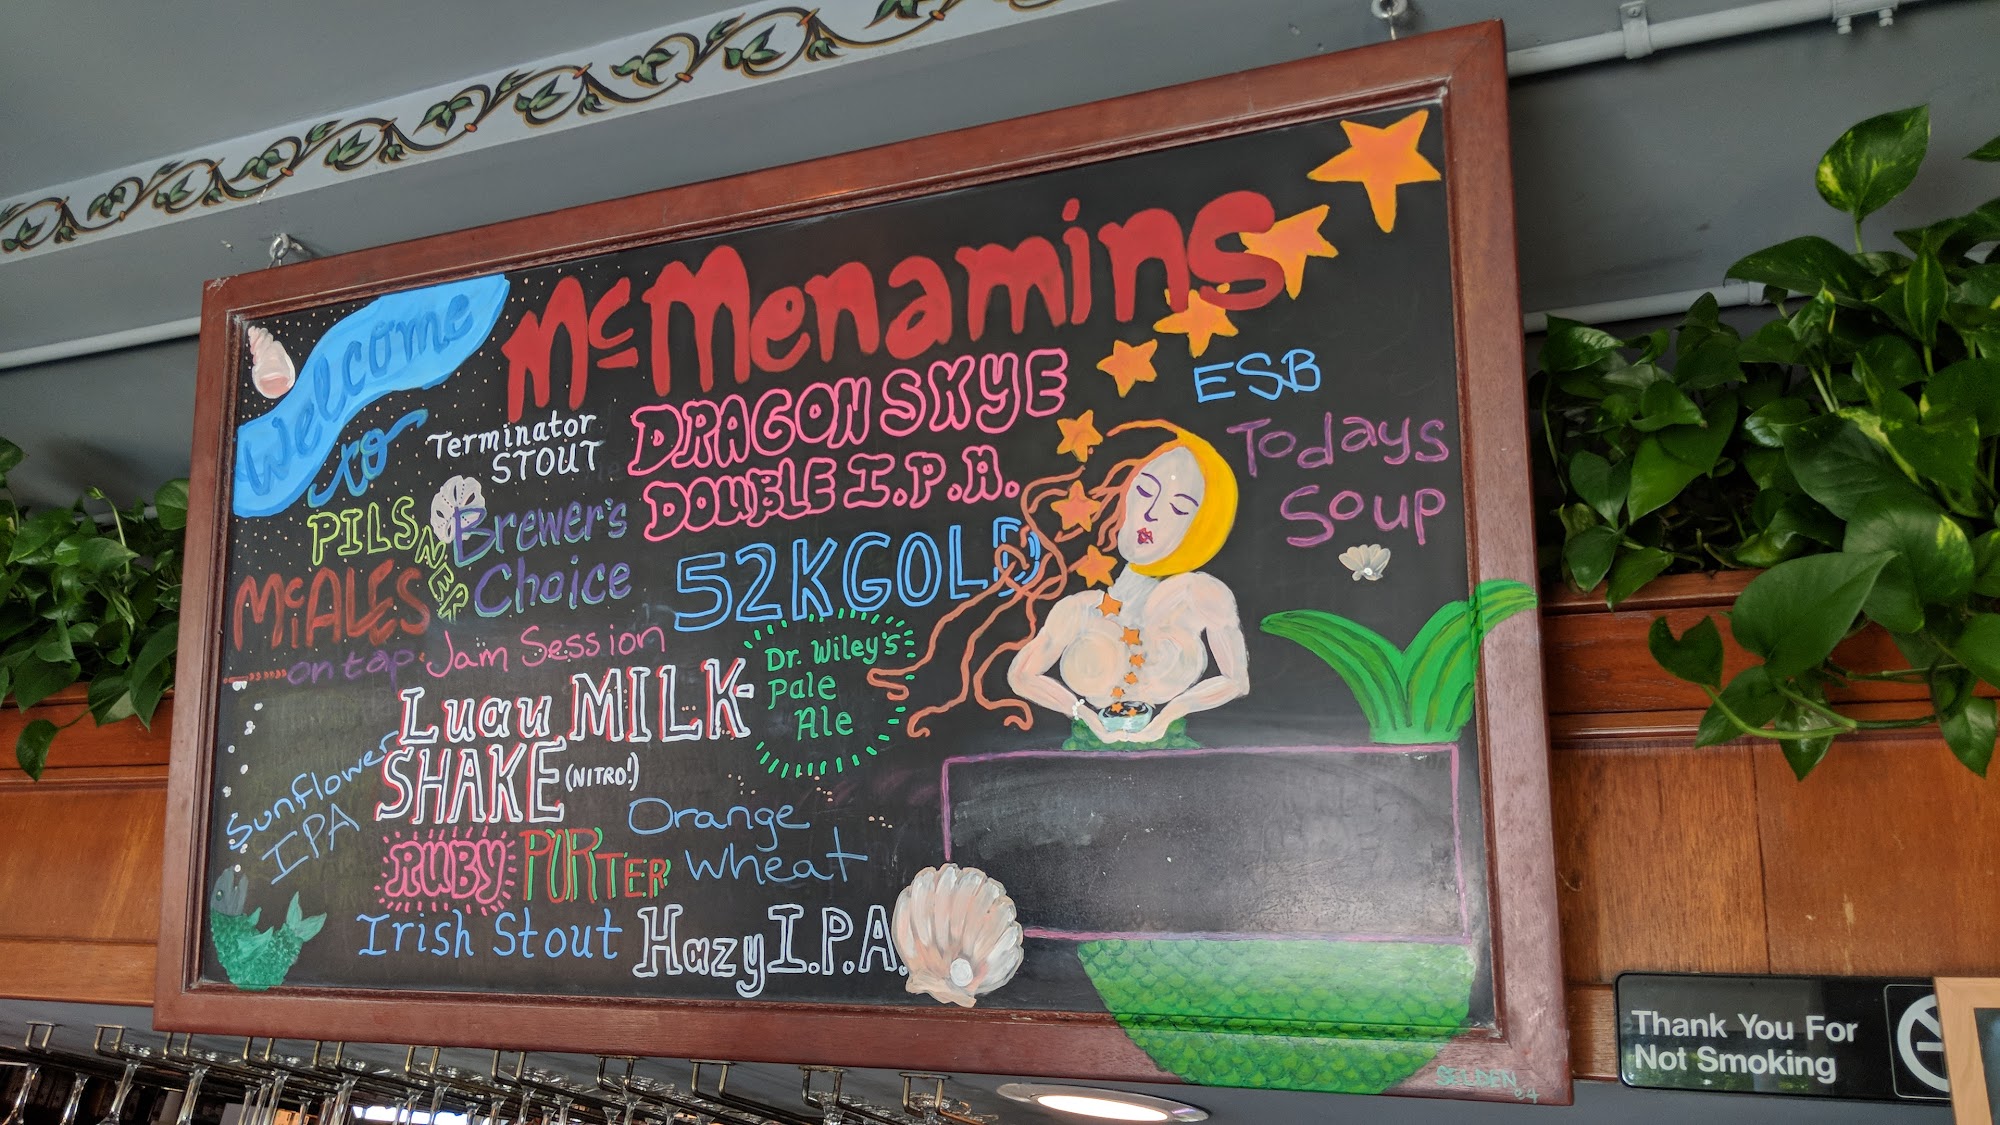 Welcome
to
McMenamins
Terminator
STOUT
DRAGONSKYE
DOUBLE I.P.A.
ESB
Todays
Soup
PILSNER
Brewer's
Choice
52KGOLD
McALES
on tap
Jam Session
Dr. Wiley's
Pale
Ale
Luau MILK-
SHAKE (NITRO!)
Sunflower
IPA
Orange
Wheat
RUBY
PORTER
Irish Stout
Hazy I.P.A.
SELDEN
04
Thank You For
Not Smoking